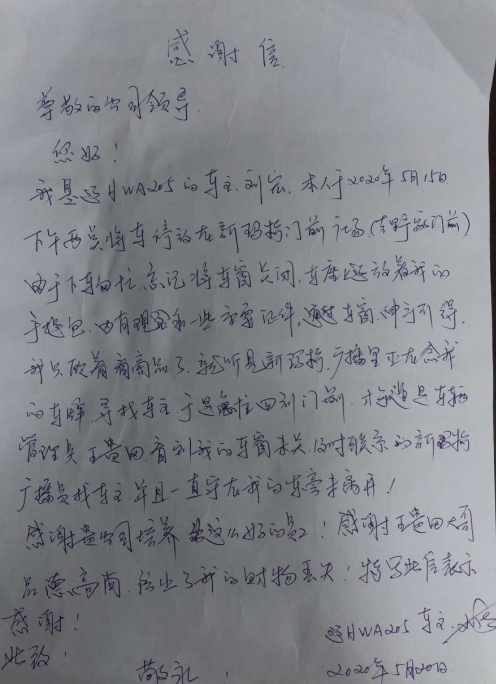 感谢信
尊敬的公司领导
您好！
我是辽HWA205的车主刘宏.本人于2020年5月15日
下午两点将车停放在新玛特门前广场.(吉野家门前)
由于下车匆忙,忘记将车窗关闭.车座上还放着我的
手提包.内有现金和一些重要证件,通过车窗伸手可得.
我只欣着看商品了.就听见新玛特广播里正在念我
的车牌.寻找车主.于是 回到门前.才知道是车辆
管理员王贵田.看到我的车窗未关.及时联系的新玛特
广播员找车主.并且一直守在我的车旁未离开！
感谢贵公司培养出这么好的员工！感谢王贵田大哥
品德高尚.终止了我的财物丢失！特写此信表示
感谢！
此致！
敬礼.
辽HWA205车主.
2020年5月20日